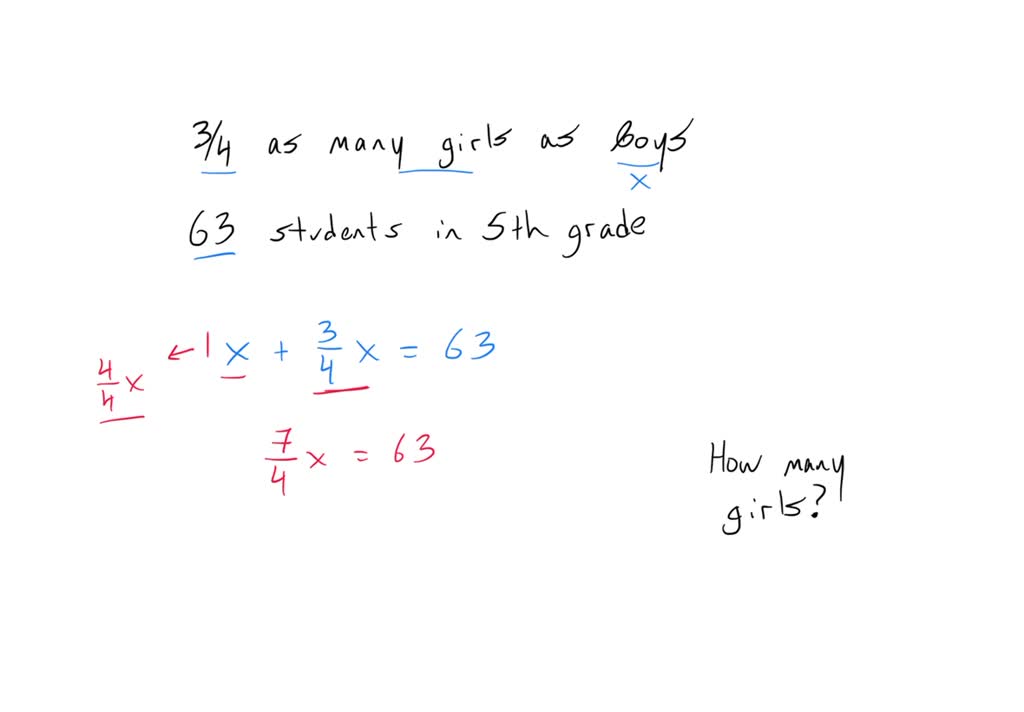 3/4 as many girls as boys
x
63 students in 5th grade
4/4 x ← 1x + 3/4 x = 63
7/4 x = 63
How many
girls?